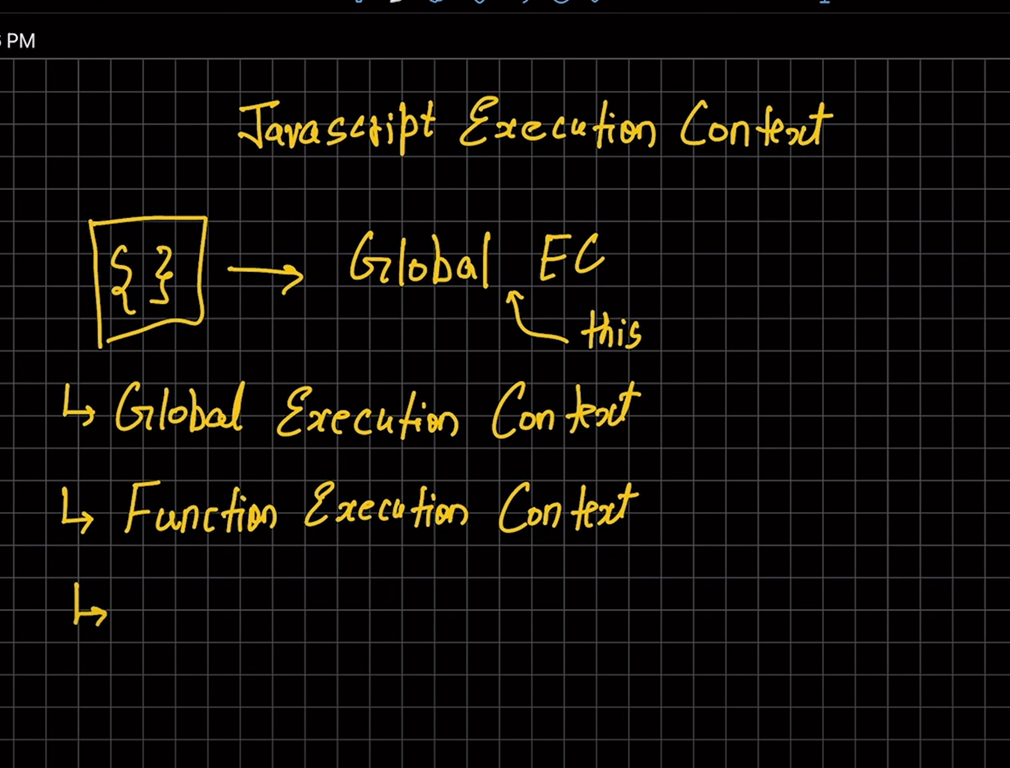 6 PM
Javascript Execution Context
{ } → Global EC
this
↳ Global Execution Context
↳ Function Execution Context
↳